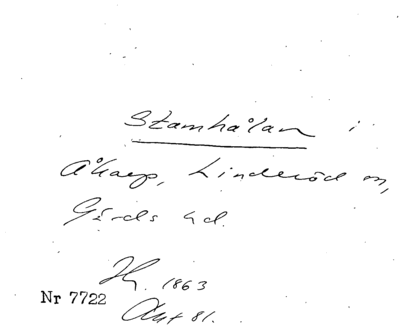 Stamhålan i
Åkarp, Linderöd sn,
Gärds hd.
1863
Nr 7722
81.